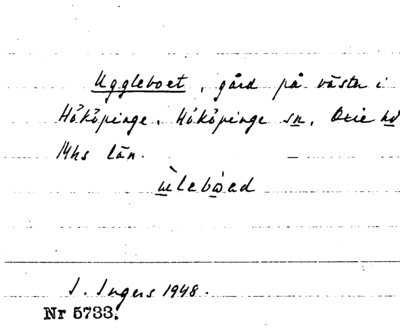 Uggleboet, gård på västra i
Hököpinge. Hököpinge sn, Oxie hd
Mhs län. –
ùlebòed
I. Ingers 1948.
Nr 5733.